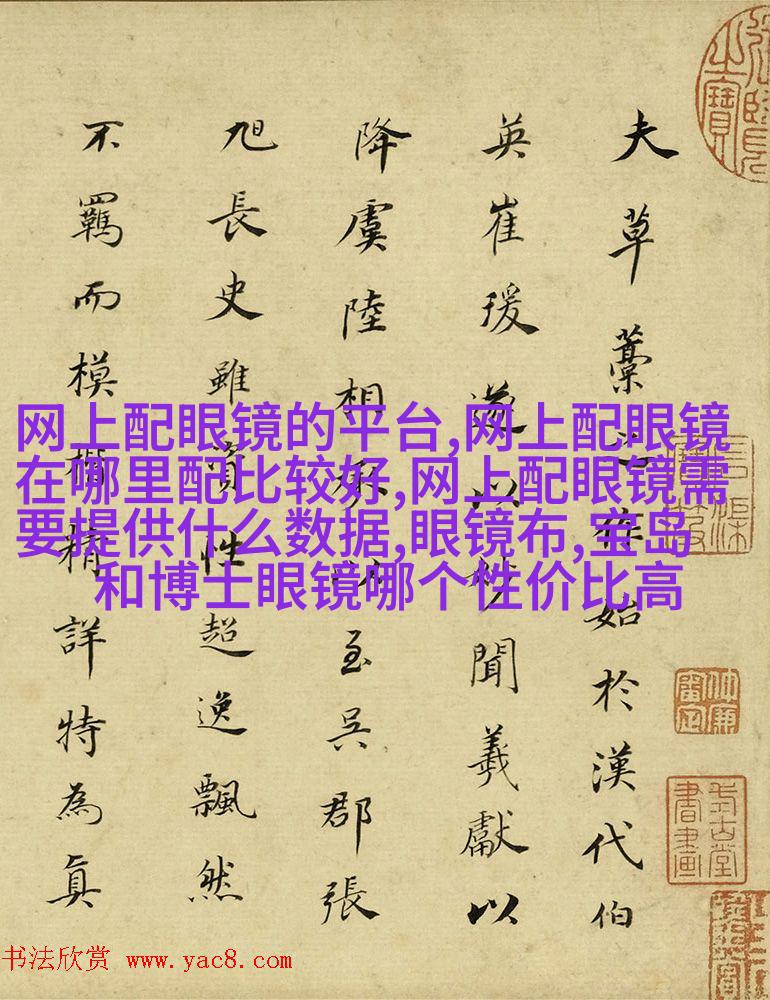 夫草藁之作始於漢代伯
英崔瑗遂以妙聞羲獻以
降虞陸相承至吳郡張
旭長史雖資性超逸飄然
不羈而模楷精詳特為真
网上配眼镜的平台,网上配眼镜
在哪里配比较好,网上配眼镜需
要提供什么数据,眼镜布,宝岛
和博士眼镜哪个性价比高
书法欣赏 www.yac8.com